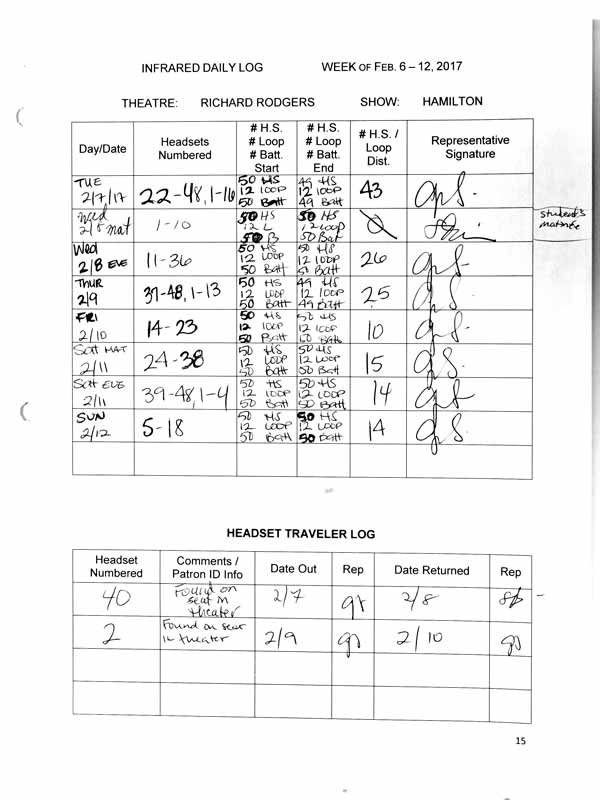 INFRARED DAILY LOG WEEK OF FEB. 6 – 12, 2017
THEATRE: RICHARD RODGERS SHOW: HAMILTON
Day/Date Headsets Numbered # H.S. # Loop # Batt. Start # H.S. # Loop # Batt. End # H.S. / Loop Dist. Representative Signature
TUE 2/7/17 22-48, 1-16 50 HS 12 LOOP 50 Batt 49 HS 12 LOOP 49 Batt 43
Wed 2/8 mat 1-10 50 HS 12 L 50 B 50 HS 12 loop 50 Bat student's matinee
Wed 2/8 EVE 11-36 50 HS 12 LOOP 50 Batt 50 HS 12 LOOP 50 Batt 26
THUR 2/9 37-48, 1-13 50 HS 12 LOOP 50 Batt 49 HS 12 LOOP 49 Batt 25
FRI 2/10 14-23 50 HS 12 LOOP 50 Batt 50 HS 12 LOOP 50 Batt 10
Sat MAT 2/11 24-38 50 HS 12 LOOP 50 Batt 50 HS 12 LOOP 50 Batt 15
Sat EVE 2/11 39-48, 1-4 50 HS 12 LOOP 50 Batt 50 HS 12 LOOP 50 Batt 14
SUN 2/12 5-18 50 HS 12 LOOP 50 Batt 50 HS 12 LOOP 50 Batt 14
HEADSET TRAVELER LOG
Headset Numbered Comments / Patron ID Info Date Out Rep Date Returned Rep
40 Found on seat in theater 2/7 2/8
2 Found on seat in theater 2/9 2/10
15